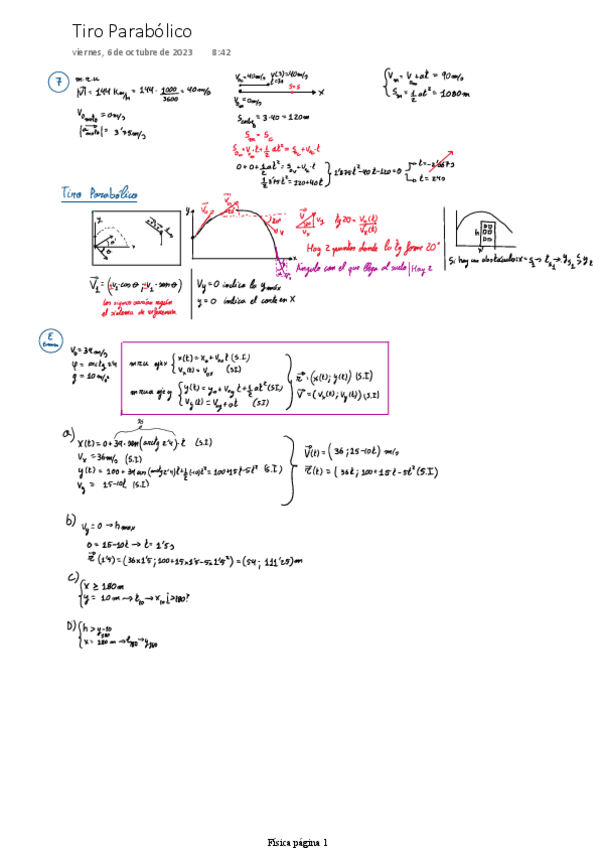 Tiro Parabólico
viernes, 6 de octubre de 2023 8:42
7 m.r.u
|V| = 144 Km/h = 144 · 1000/3600 = 40 m/s
V₀ moto = 0 m/s
|a moto| = 3'75 m/s
x
V = 0 m/s
S = 3·40 = 120m
Sm = Sc
0+0+½at² = S + V·t
½3'75t² = 120+40t
1'875t²-40t-120=0
t = 24s
Vm = V₀ + at = 90 m/s
Sm = ½at² = 1080m
Tiro Parabólico
y
x
tg 20 = Vy(t)/Vx(t)
Hay 2 puntos donde la tg forme 20°
Ángulo con el que llega al suelo | Hay 2
h
Si hay un obstáculo
Los signos varían según
el sistema de referencia
Vy = 0 indica la y máx
y = 0 indica el corte en X
E
V₀ = 39 m/s
φ = arctg 2'4
g = 10 m/s²
m r u eje x { x(t) = x₀ + V₀ₓt (S.I)
Vₓ(t) = V₀ₓ (S.I)
m r u a eje y { y(t) = y₀ + V₀y t + ½at² (S.I)
Vy(t) = V₀y + at (S.I)
r = (x(t); y(t)) (S.I)
V = (Vx(t); Vy(t)) (S.I)
a) x(t) = 0 + 39·sen(arctg 2'4)·t (S.I)
Vx = 36 m/s (S.I)
y(t) = 100 + 39 cos(arctg 2'4)t + ½(-10)t² = 100+15t-5t² (S.I)
Vy = 15-10t (S.I)
V(t) = (36; 15-10t) m/s
r(t) = (36t; 100+15t-5t² (S.I)
b) Vy = 0 → h max
0 = 15-10t → t = 1'5s
r(1'5) = (36×1'5; 100+15×1'5-5×1'5²) = (54; 111'25)m
c) { x ≥ 180m
y = 10m → t₁₀ → x₁₀ ¿>180?
D) { h > y₁₈₀
x = 180m → t₁₈₀ → y₁₈₀
Física página 1